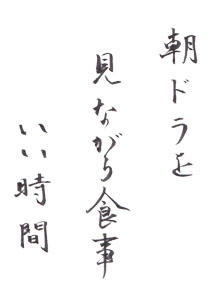 朝ドラを
見ながら食事
いい時間